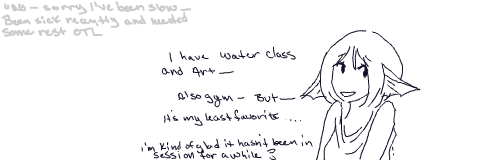 sorry I've been slow —
Been sick recently and needed
some rest OTL
I have water class
and Art —
Also gym — But —
it's my least favorite ...
i'm kind of glad it hasn't been in
session for a while